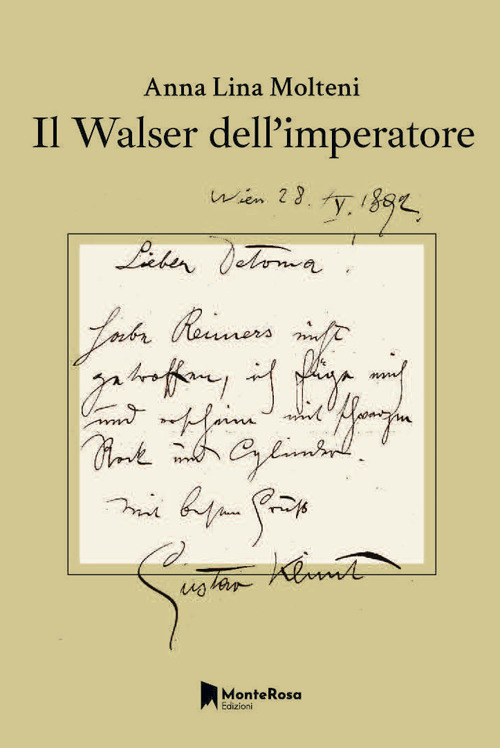 Anna Lina Molteni
Il Walser dell'imperatore
Wien 28. V. 1892.
Lieber Detoma!
Habe Reimers nicht
getroffen, ich füge mich
und erscheine mit schwarzem
Rock und Cylinder.
Mit bestem Gruß
Gustav Klimt
MonteRosa
Edizioni